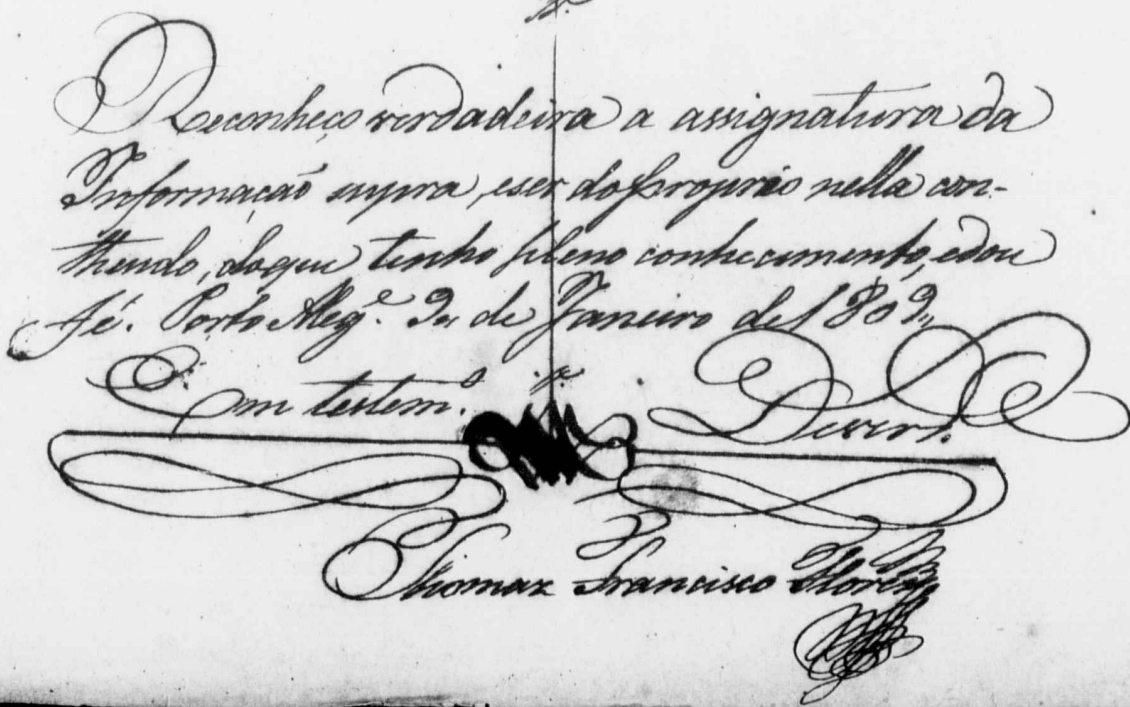 Reconheço verdadeira a assignatura da
Informação supra, e ser do proprio nella con-
theudo, do que tenho pleno conhecimento, e dou
fé. Porto Alegᵉ. de Janeiro de 1809,,
Em testemᵒ. Deverd.
Thomaz Francisco Flores